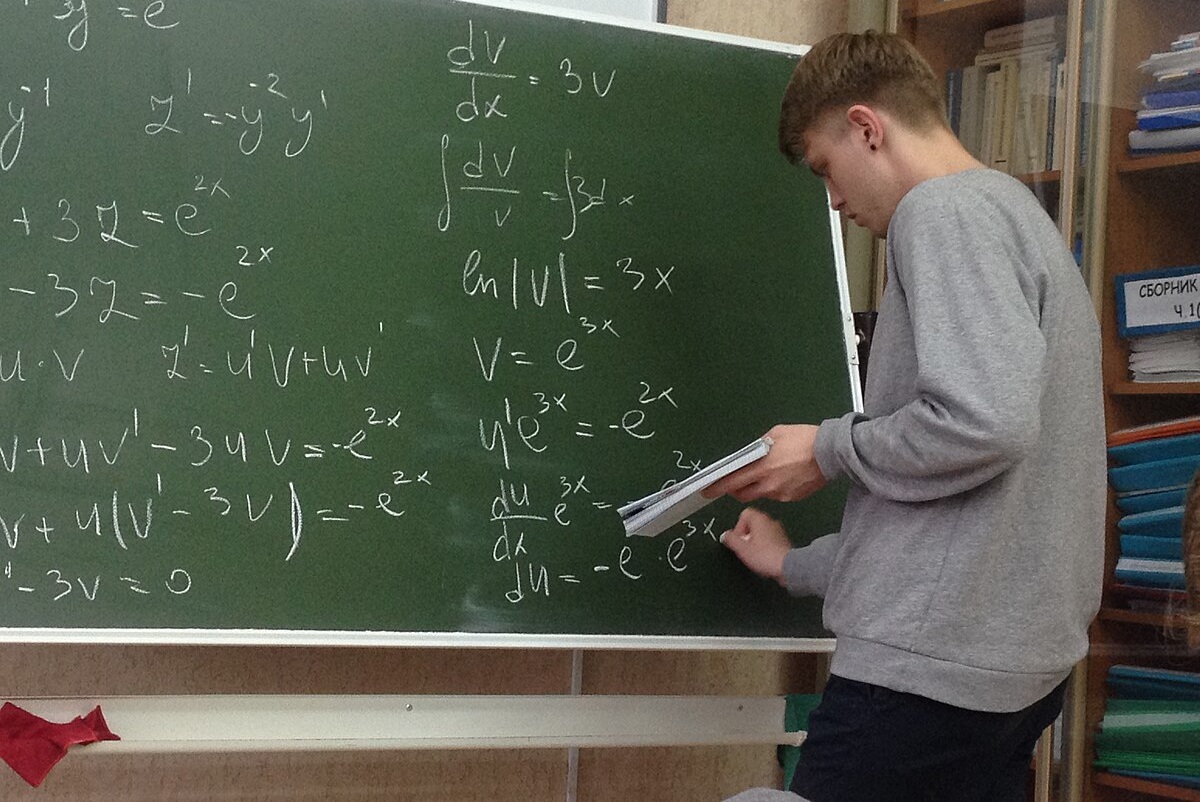 3y = e
y⁻¹ z' = -y⁻² y'
+ 3z = e²ˣ
- 3z = - e²ˣ
u·v z' = u'v + uv'
v + uv' - 3uv = -e²ˣ
v + u(v' - 3v) = - e²ˣ
' - 3v = 0
dv/dx = 3v
∫ dv/v = ∫ 3dx
ln|v| = 3x
v = e³ˣ
u'e³ˣ = -e²ˣ
du/dx e³ˣ = - e²ˣ
du = -e · e³ˣ
СБОРНИК
Ч.1(